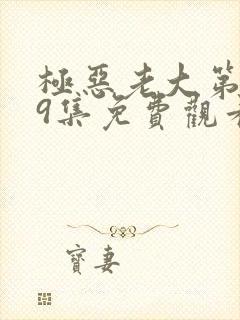 極惡老大第
9集免費觀看
寶妻